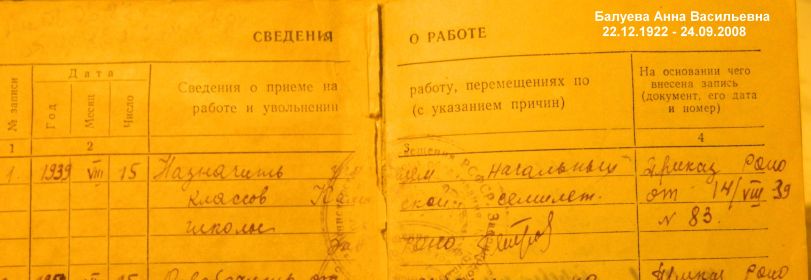 Балуева Анна Васильевна
22.12.1922 - 24.09.2008
СВЕДЕНИЯ О РАБОТЕ
№ записи
Дата
Год
Месяц
Число
Сведения о приеме на работу, перемещениях по
работе и увольнении (с указанием причин)
На основании чего
внесена запись
(документ, его дата
и номер)
1 2 3 4
1. 1939 VIII 15 Назначить начальных Приказ Роно
классов семилет. от 14/VIII 39
школы N 83.
Зав Роно Петров
Приказ Роно